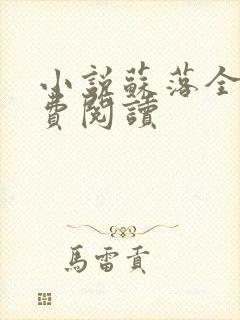 小説蘇落全
費閱讀
馬雷貢